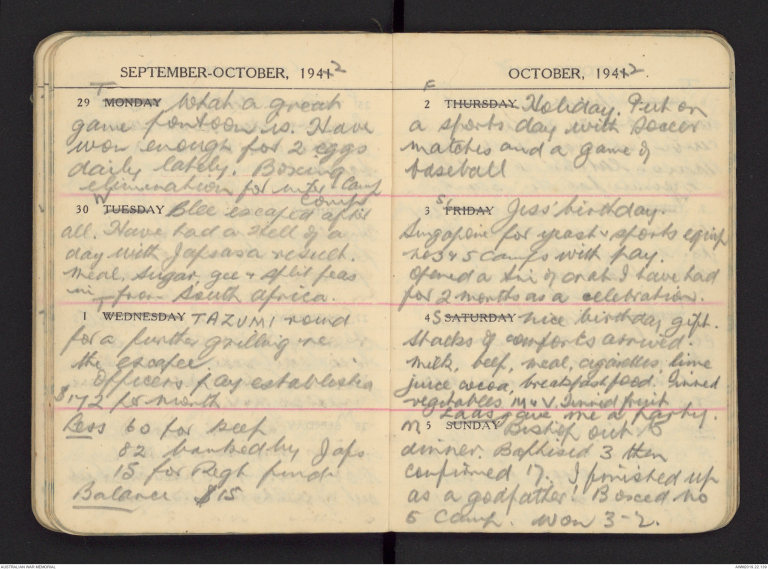 SEPTEMBER-OCTOBER, 1942
T
29 MONDAY What a great
game pontoon is. Have
won enough for 2 eggs
daily lately. Boxing
elimination for inter Camp
Comp
W
30 TUESDAY Blee escaped after
all. Have had a Hell of a
day with Japs as a result.
Meal, Sugar gee & split peas
in from South Africa.
T
1 WEDNESDAY TAZUMI round
for a further grilling re
the escapee.
Officers pay establishia
$172 per month
Less 60 for keep
82 banked by Japs
15 for Regt fund
Balance $15
OCTOBER, 1942.
F
2 THURSDAY Holiday. Put on
a sports day with Soccer
matches and a game of
baseball
S
3 FRIDAY Jess' birthday.
Singapore for yeast & sports equip
No 3 & 5 Camps with pay.
Opened a tin of I have had
for 2 months as a celebration.
4 S SATURDAY nice birthday gift.
Stacks of comforts arrived.
Milk, beef, meal, cigarettes, lime
juice cocoa, breakfast food. Tinned
vegetables M & V. Tinned fruit
gave me a party.
M
5 SUNDAY Bishop out to
dinner. Baptised 3 then
confirmed 17. I finished up
as a godfather! Boxed No
5 Camp. Won 3-2.
AUSTRALIAN WAR MEMORIAL